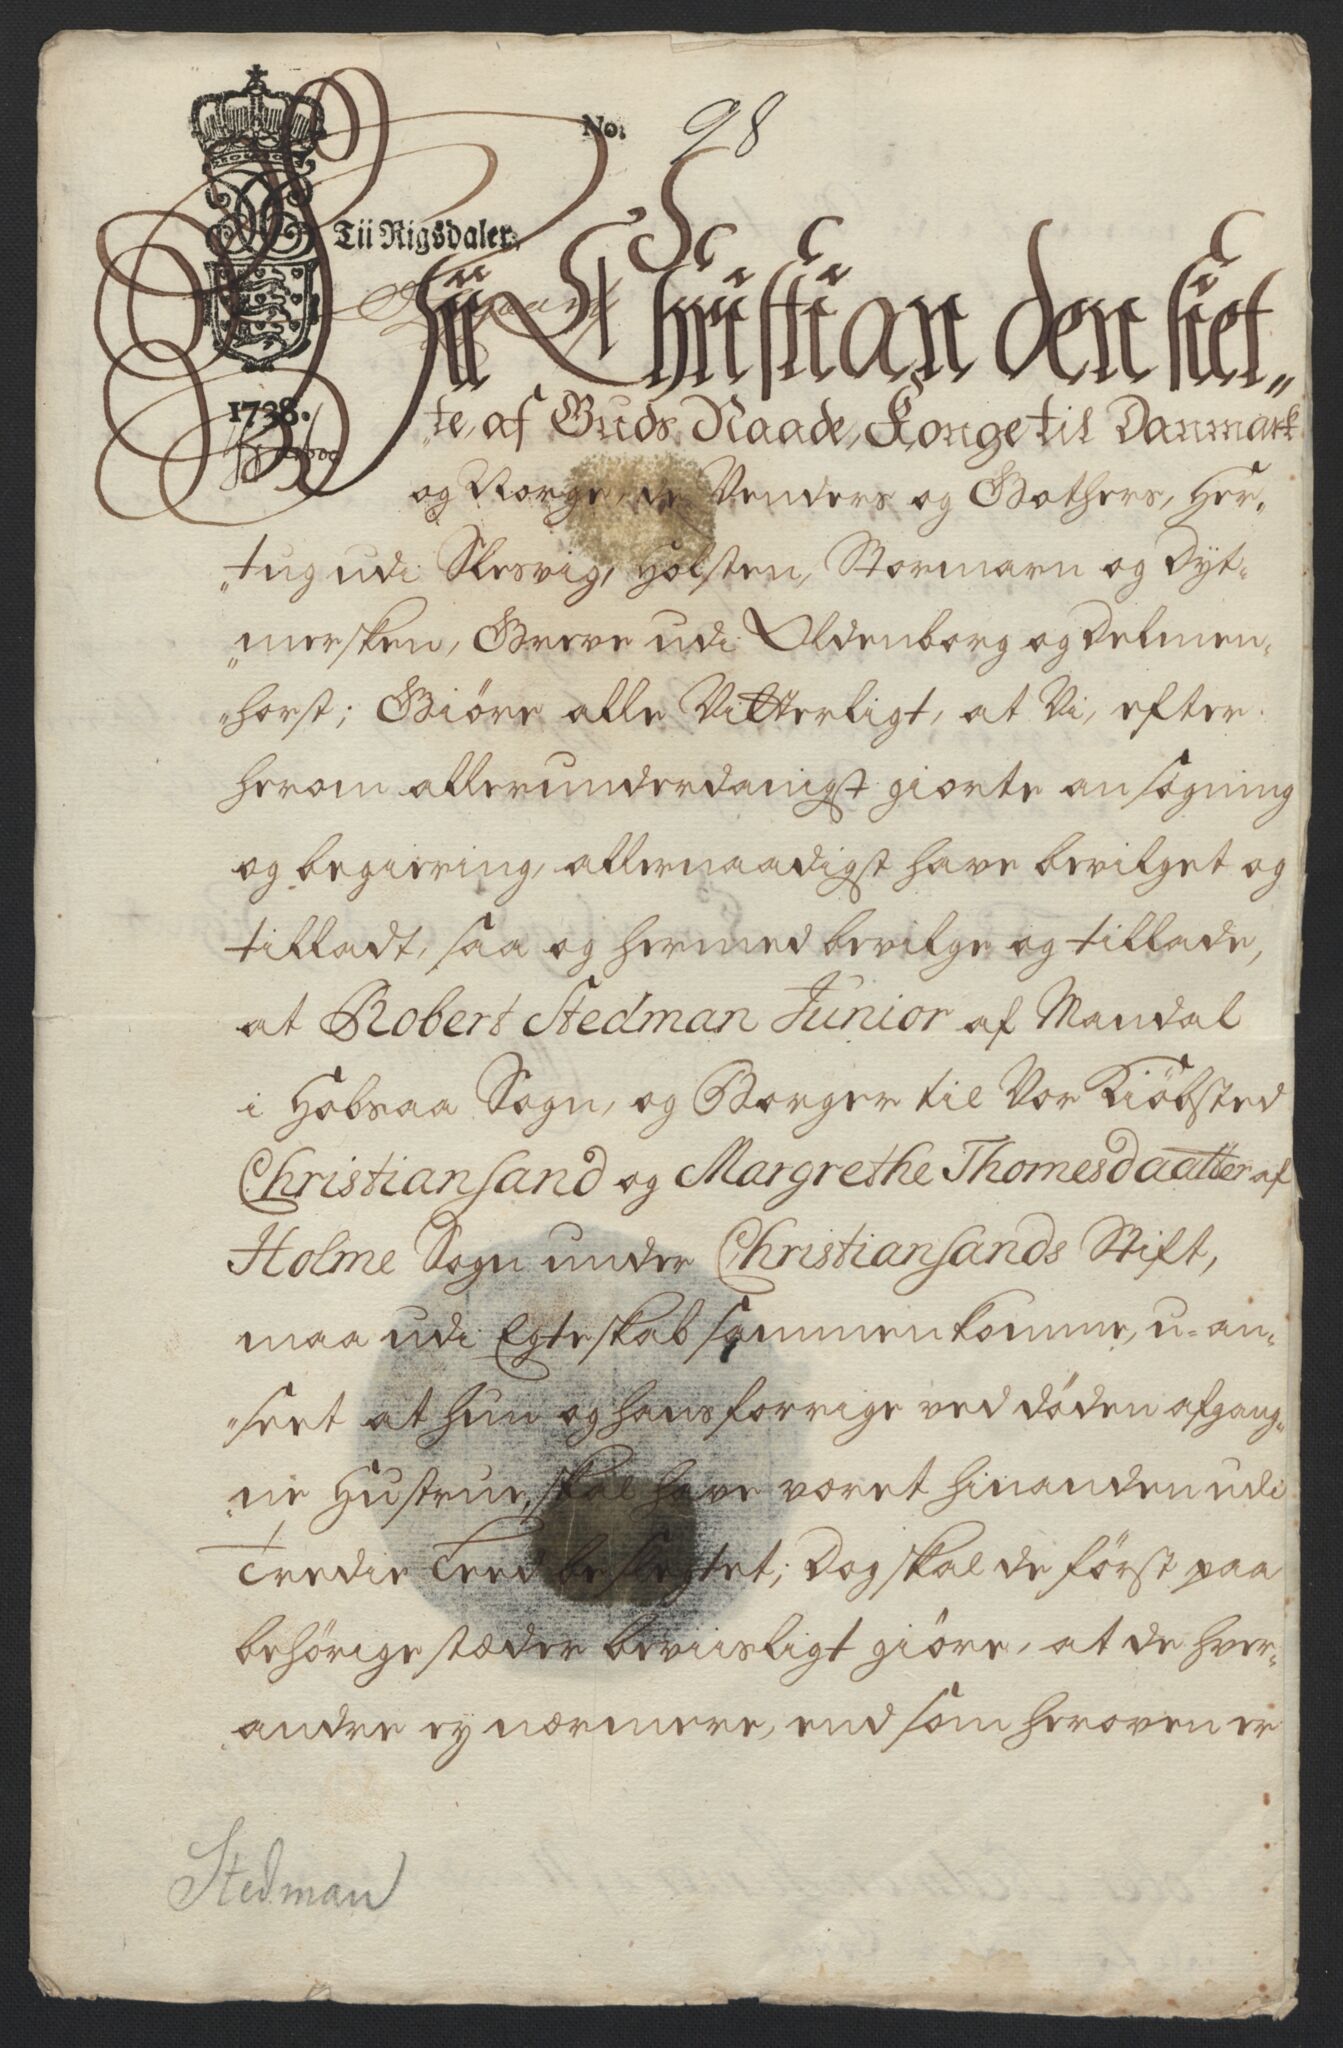 No. 98
Tii Rigsdaler.
1738.
Vii Christian den siet„
„te, af Guds Naade, Konge til Danmark
og Norge, de Venders og Gothers, Her„
„tug udi Slesvig, Holsten, Stormarn og Dyt„
„mersken, Greve udi Oldenborg og Delmen„
„horst; Giöre alle Vitterligt, at Vi, efter
herom allerunderdanigst giorte ansøgning
og begiering, allernaadigst have bevilget og
tilladt, saa og hermed bevilge og tillade,
at Robert Stedman Junior af Mandal
i Halsaa Sogn, og Borger til Vor Kiöbsted
Christiansand og Margrethe Thomesdaatter af
Holme Sogn under Christiansands Stift,
maa udi Egteskab sammenkomme, u-an„
„seet at hun og hans forrige ved döden afgang„
ne Hustrue, skal have været hinanden udi
Tredie Leed beslegtet; Dog skal de först paa
behörige stæder beviisligt giöre, at de hver„
andre ey nærmere, end som heroven er
Stedman